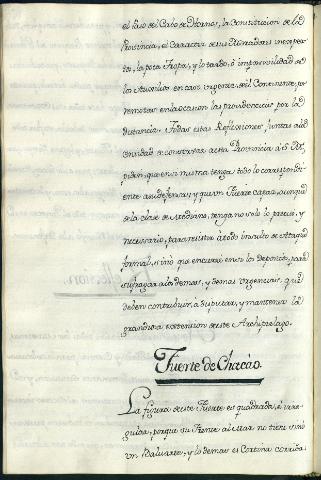 el paso del Cabo de Hornos, la Constitucion de la
Provincia, el Caracter de sus Moradores inexper-
to, la poca Tropa, y lo tardo, ó imposivilidad de
los Auxilios en caso urgente, del Continente, por
remotas en la ocasion las providencias por la
distancia. Todas estas Reflexiones juntas á la
entidad de conservar á esta Provincia á S. M.
piden, que en si misma tenga todo lo correspondi-
ente á su defensa; y que un Fuerte capaz, aunque
de la clase de Mediano, tenga no solo lo preciso, y
necesario, para resistir á todo insulto de Ataque
formal, sino que encierre en si los Depositos, para
sufragar á los demas, y demas urgencias, que
deben contribuir, á Soportar, y mantener la
grandiosa extension de este Archipielago.
Fuerte de Chacáo.
La figura de este Fuerte es quadrada, é irre-
gular, porque su Frente al Mar no tiene sino
un Baluarte, y lo demas es Cortina corrida